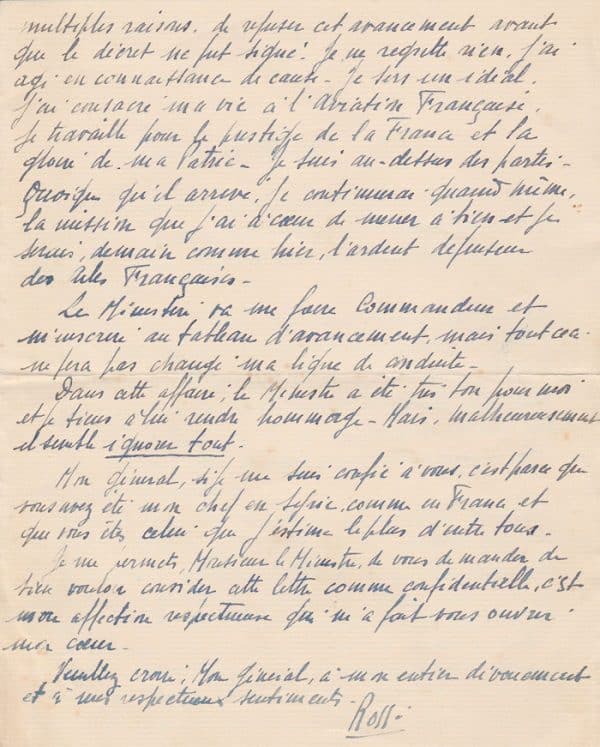 multiples raisons, de refuser cet avancement avant
que le décret ne fut signé. Je ne regrette rien, j'ai
agi en connaissance de cause - Je sers un idéal.
J'ai consacré ma vie à l'Aviation Française.
Je travaille pour le prestige de la France et la
gloire de ma Patrie - Je suis au-dessus des partis -
Quoique qu'il arrive, je continuerai quand même,
la mission que j'ai à cœur de mener à bien et je
serai, demain comme hier, l'ardent défenseur
des Ailes Françaises -
Le Ministère va me faire Commandeur et
m'inscrire au tableau d'avancement, mais tout cela
ne fera pas changer ma ligne de conduite -
Dans cette affaire, le Ministre a été très bon pour moi
et je tiens à lui rendre hommage - Mais, malheureusement
il semble ignorer tout.
Mon général, si je me suis confié à vous, c'est parce que
vous avez été mon chef en Syrie, comme en France et
que vous êtes celui que j'estime le plus d'entre tous -
Je me permets, Monsieur le Ministre, de vous demander de
bien vouloir considérer cette lettre comme confidentielle, c'est
mon affection respectueuse qui m'a fait vous ouvrir
mon cœur -
Veuillez croire, Mon général, à mon entier dévouement
et à mes respectueux sentiments -
Rossi